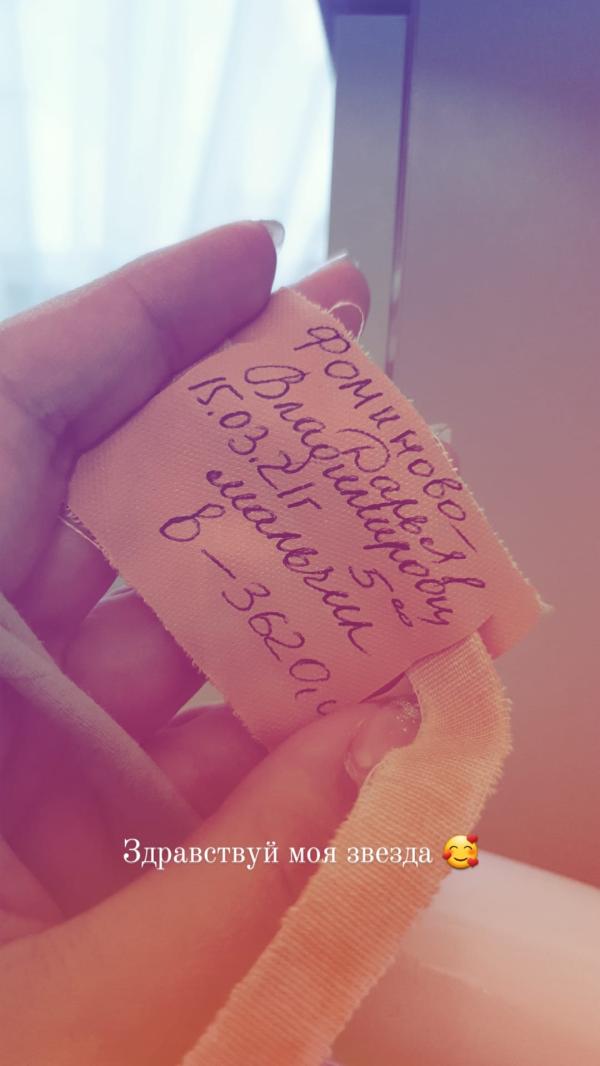 Фоминово-
Дарья
Владимировн
15.03.21г 5 00
мальчик
в - 3620,
Здравствуй моя звезда 🥰